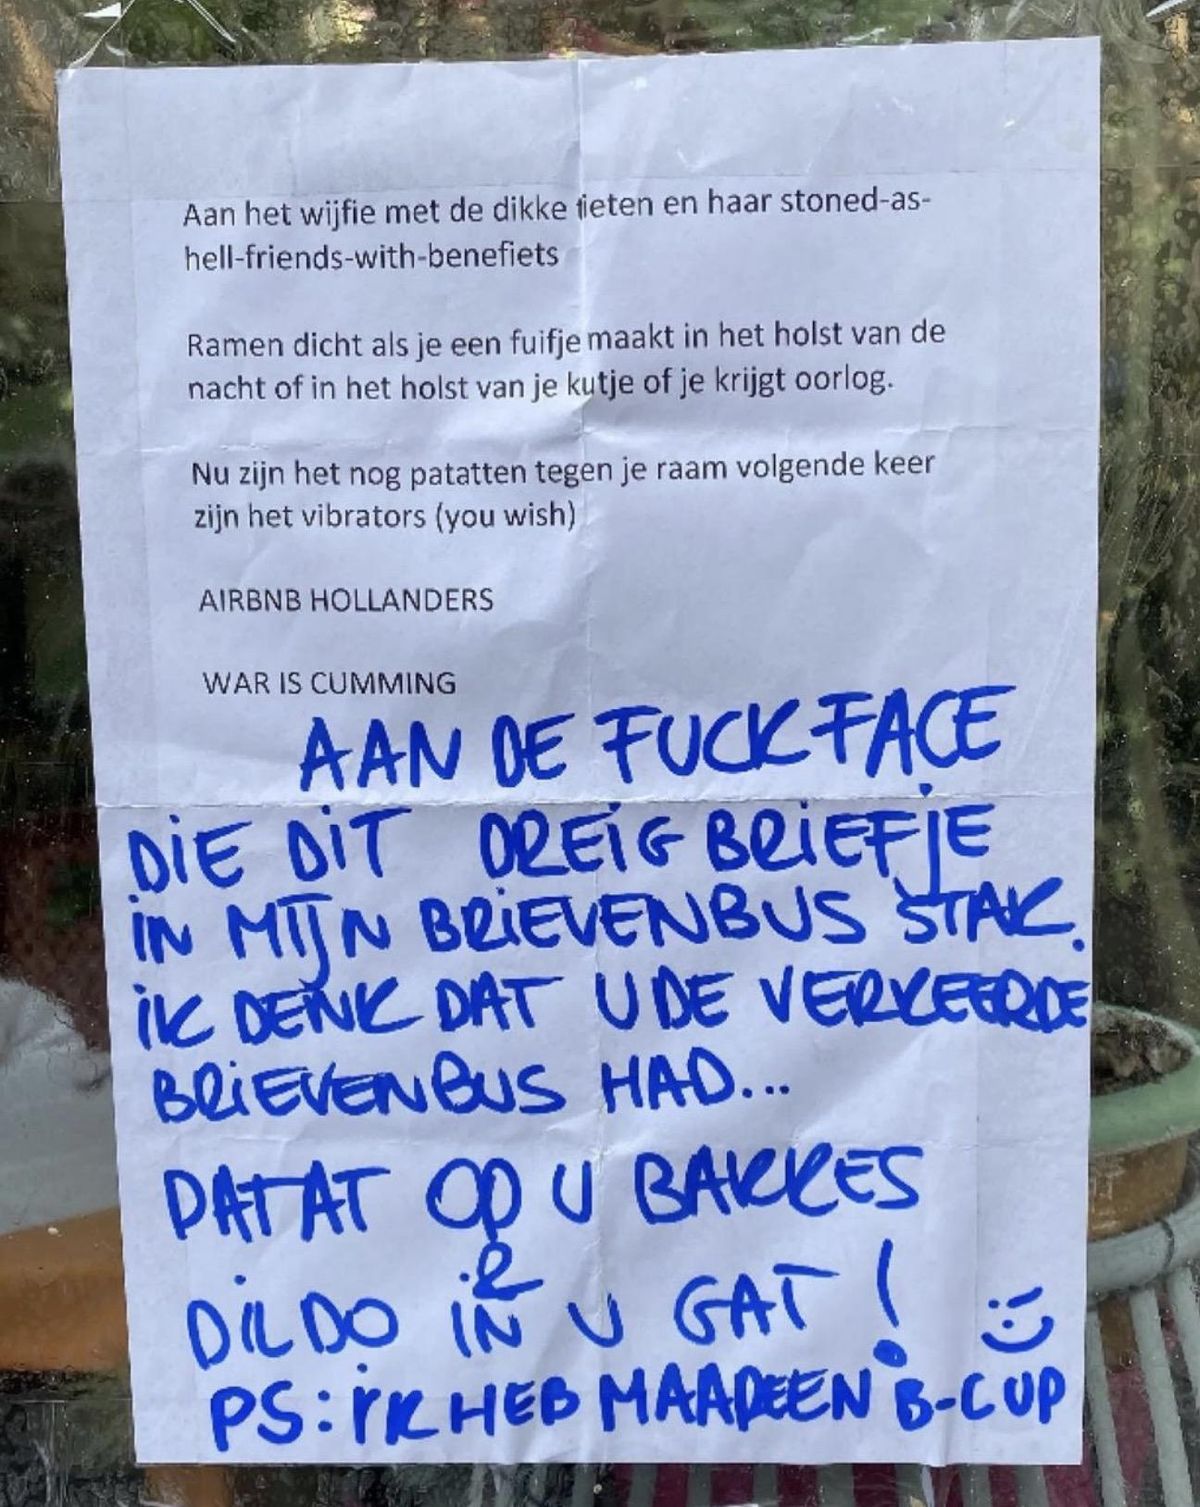 Aan het wijfie met de dikke tieten en haar stoned-as-
hell-friends-with-benefiets
Ramen dicht als je een fuifje maakt in het holst van de
nacht of in het holst van je kutje of je krijgt oorlog.
Nu zijn het nog patatten tegen je raam volgende keer
zijn het vibrators (you wish)
AIRBNB HOLLANDERS
WAR IS CUMMING
AAN DE FUCKFACE
DIE DIT DREIGBRIEFJE
IN MIJN BRIEVENBUS STAK.
IK DENK DAT U DE VERKEERDE
BRIEVENBUS HAD...
PATAT OP U BAKKES
&
DILDO IN U GAT!
PS: IK HEB MAAR EEN B-CUP